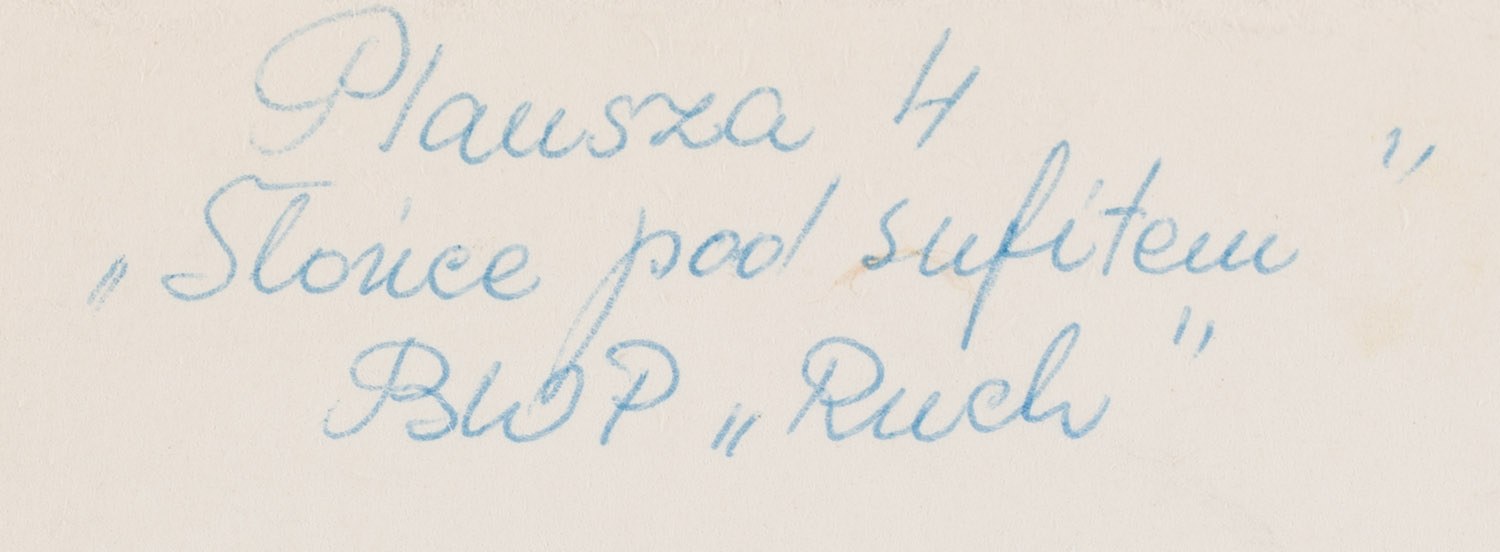 Plansza 4
„Słońce pod sufitem”
BWP „Ruch”